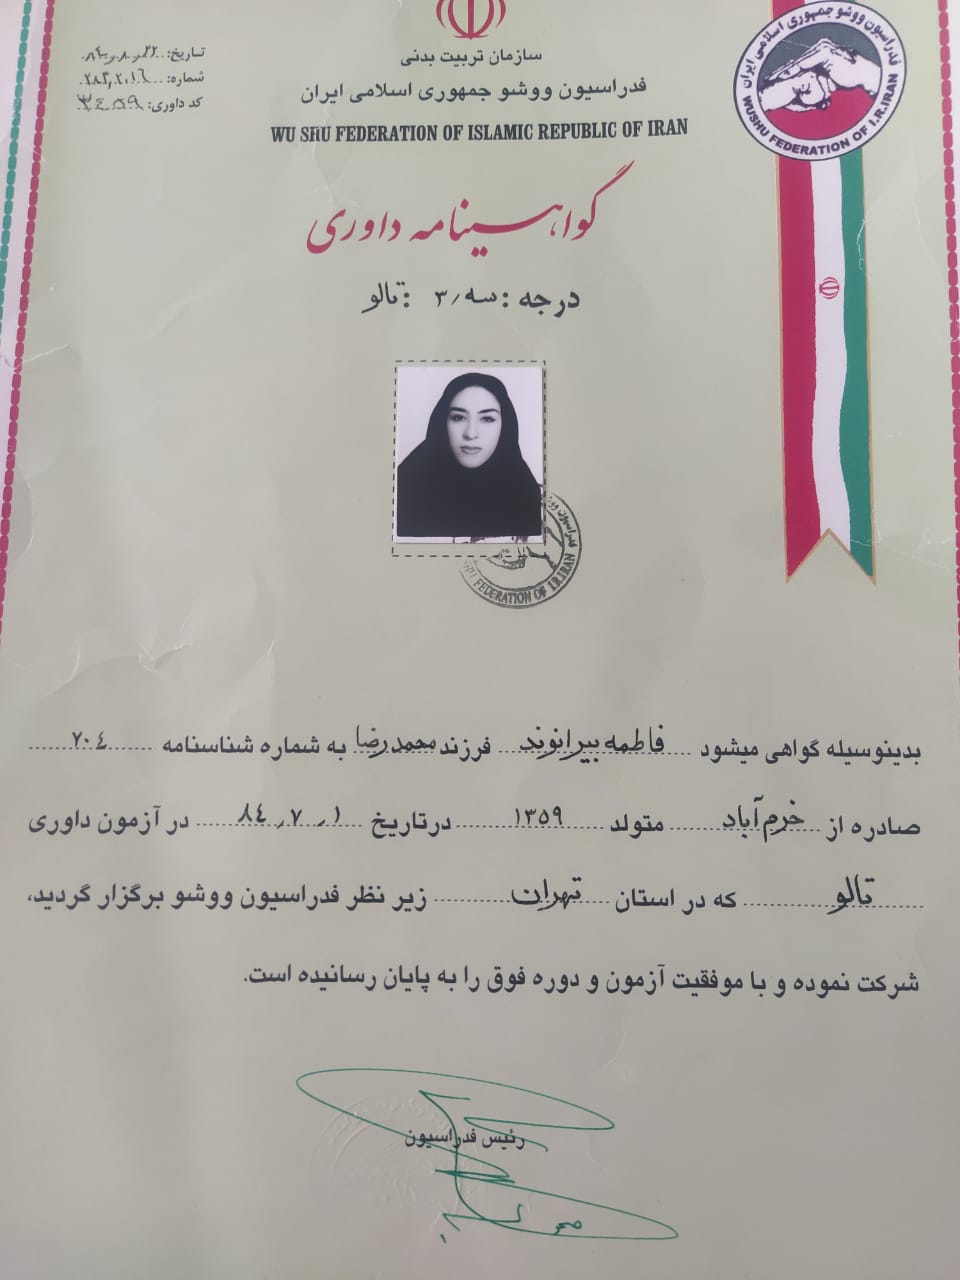 سازمان تربیت بدنی
فدراسیون ووشو جمهوری اسلامی ایران
WU SHU FEDERATION OF ISLAMIC REPUBLIC OF IRAN
تاریخ: ۸۴٫۸٫۲۲
شماره: ۲۸۳٫۲۰۱۶
کد داوری: ۳۴۵۹
فدراسیون ووشو جمهوری اسلامی ایران
WUSHU FEDERATION OF I.R.IRAN
گواهینامه داوری
درجه : سه ٫۳ : تالو
فدراسیون
SHU FEDERATION OF I.R.IRAN
بدینوسیله گواهی میشود فاطمه بیرانوند فرزند محمدرضا به شماره شناسنامه ۷۰۴
صادره از خرم‌آباد متولد ۱۳۵۹ درتاریخ ۸۴٫۷٫۱ در آزمون داوری
تالو که در استان تهران زیر نظر فدراسیون ووشو برگزار گردید،
شرکت نموده و با موفقیت آزمون و دوره فوق را به پایان رسانیده است.
رئیس فدراسیون